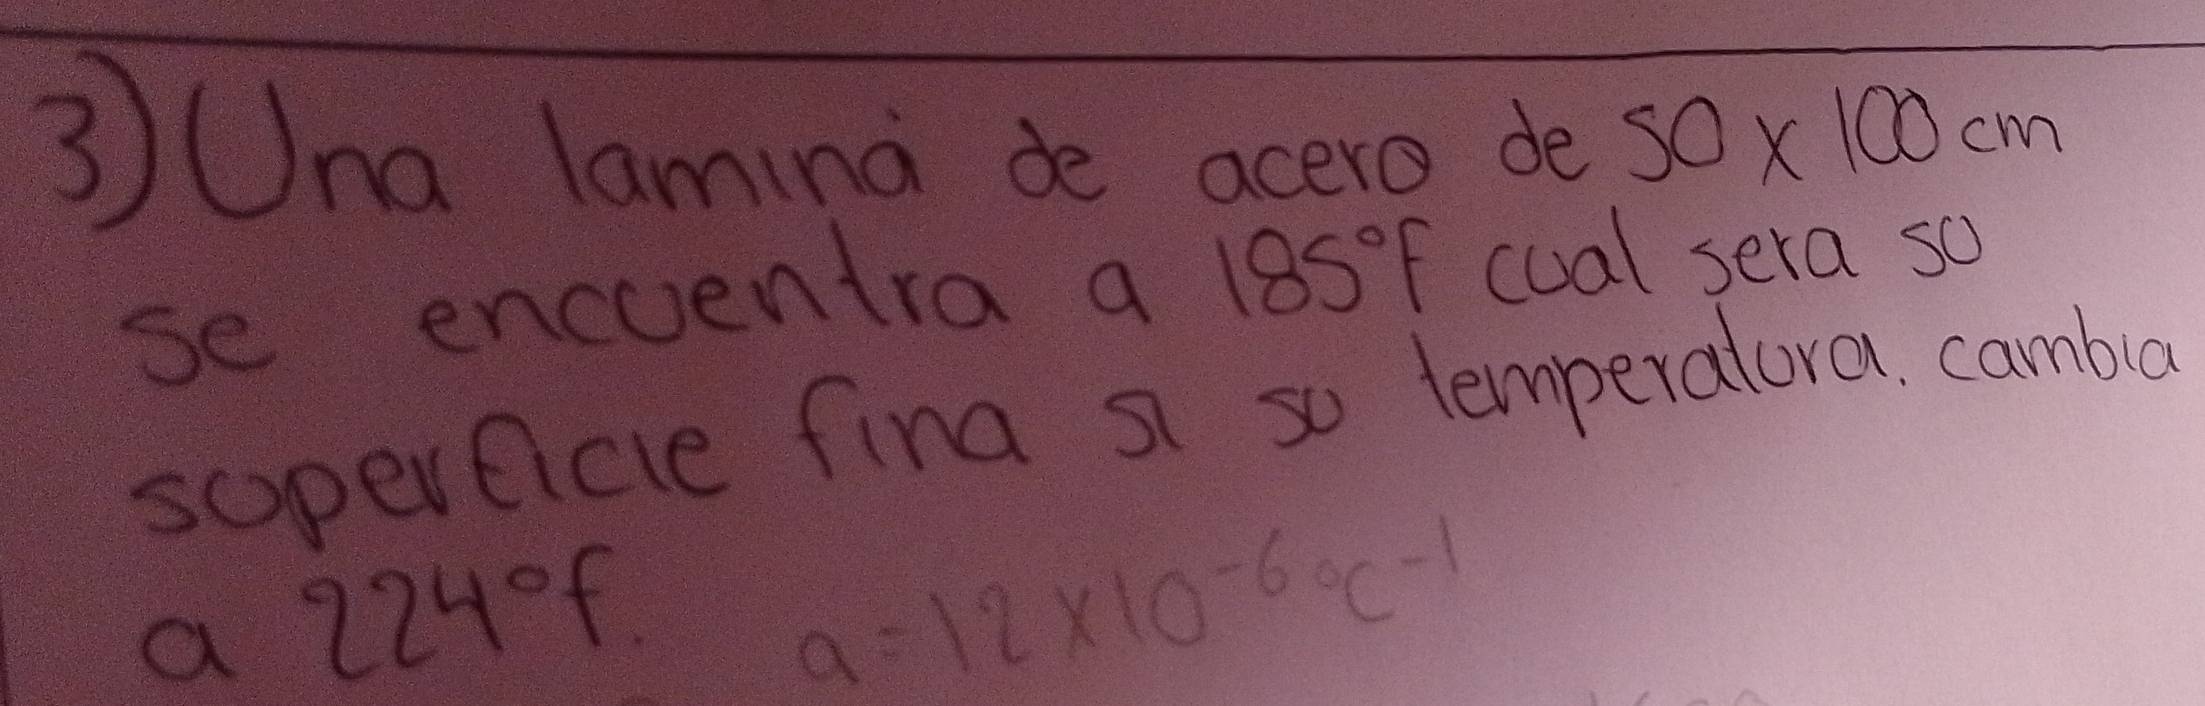 3) Una lamina de acero de 50 x 100 cm
se encuentra a 185°F cual sera su
superficie fina si su temperatura. cambia
a 224°f. a = 12 x 10⁻⁶ °C⁻¹